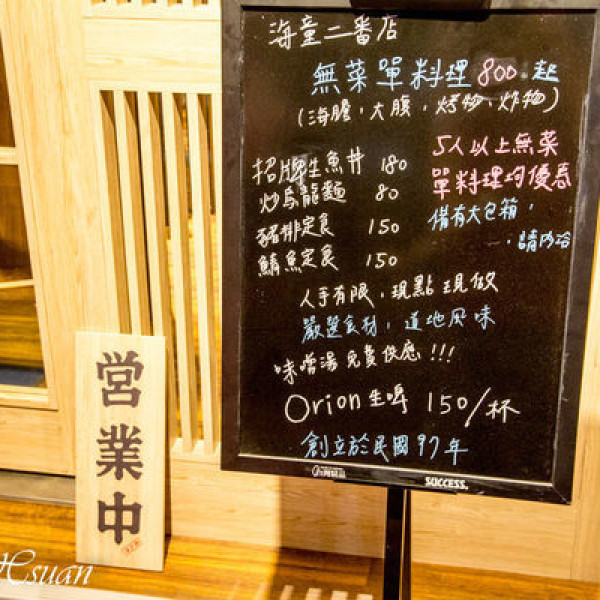 海童二番店
無菜單料理 800 起
(海膽，大腹，烤物、炸物)
招牌生魚丼 180
炒烏龍麵 80
豬排定食 150
鯖魚定食 150
5人以上無菜
單料理均優惠
備有大包箱，
，請內洽
人手有限，現點現做
嚴選食材，道地風味
味噌湯免費供應!!!
Orion 生啤 150/杯
創立於民國97年
SUCCESS.
営業中
Hsuan